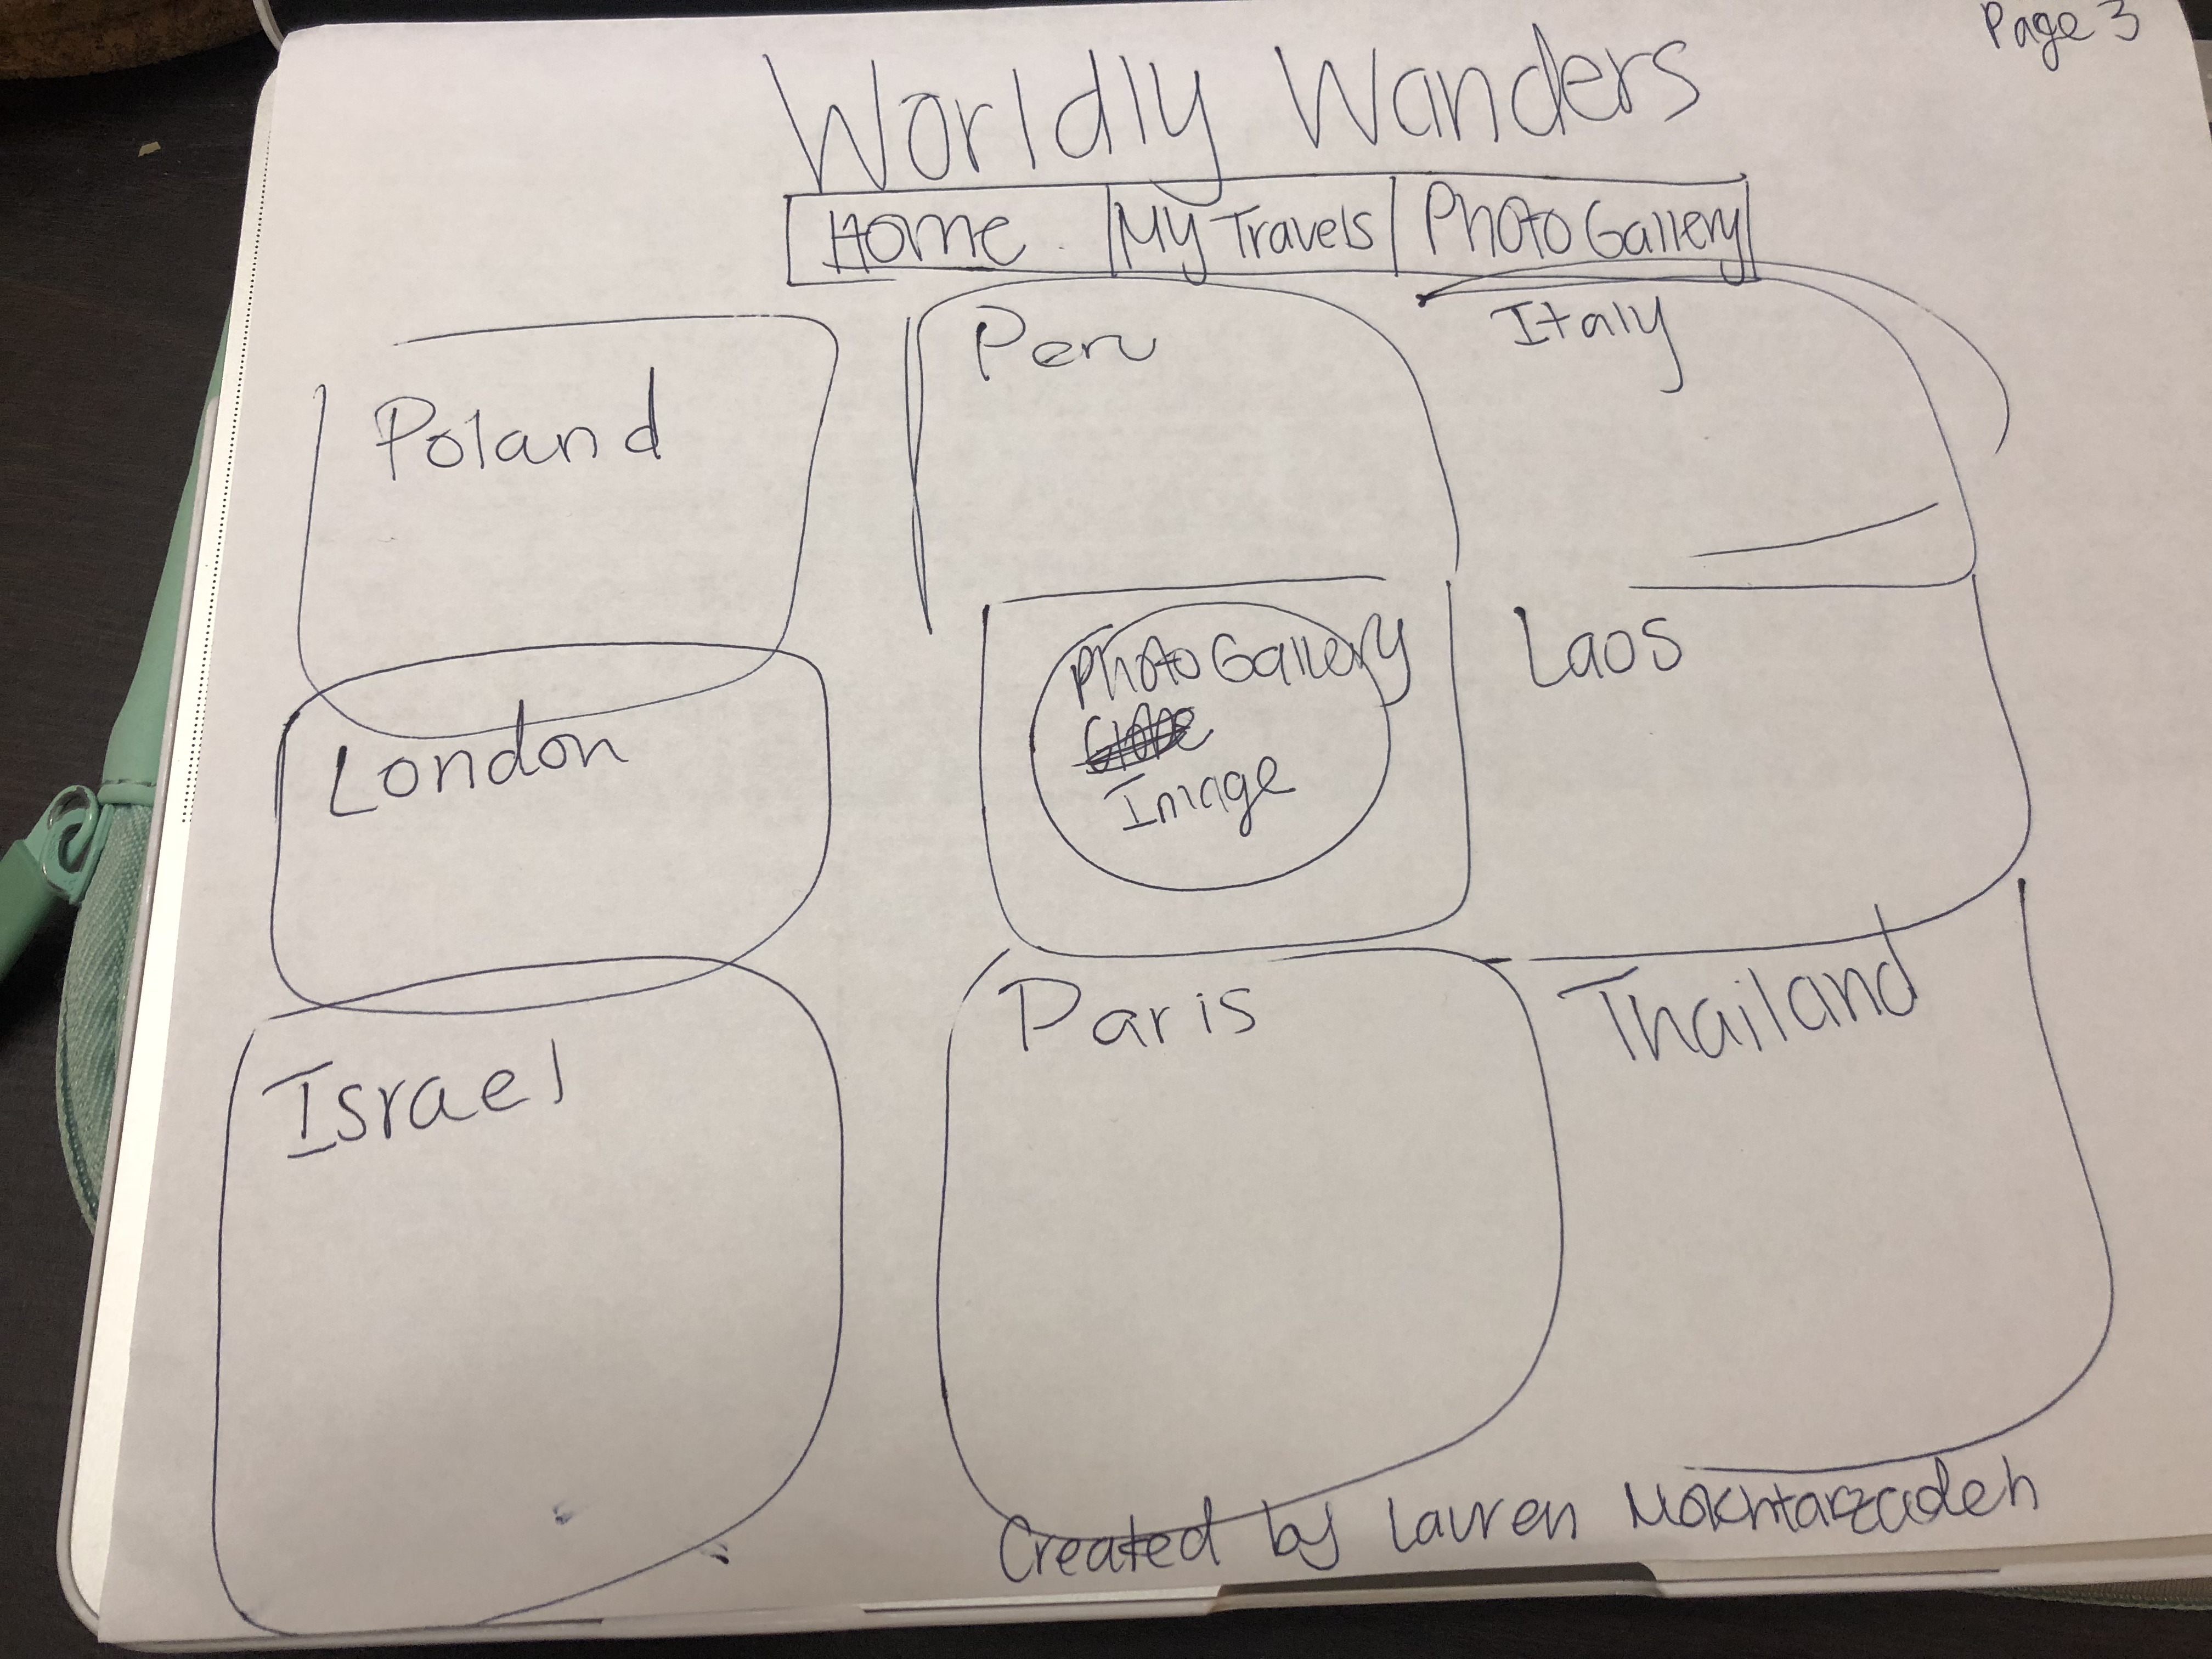 Page 3
Worldly Wanders
Home | My Travels | Photo Gallery
Poland
Peru
Italy
London
Photo Gallery
Image
Laos
Israel
Paris
Thailand
Created by Lauren Mokhtarzadeh